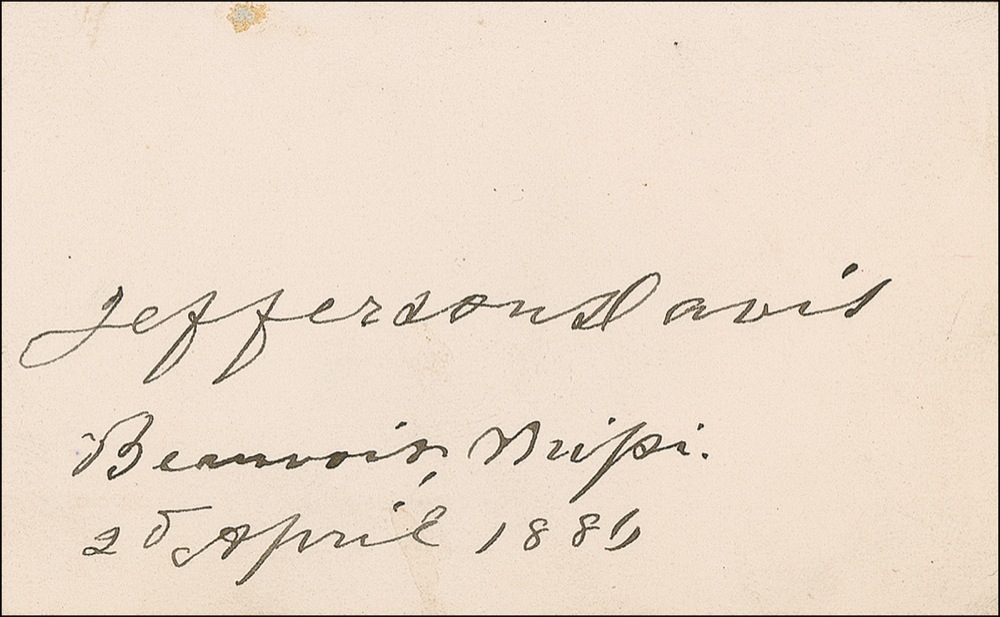 Jefferson Davis
Beauvoir, Missi.
April